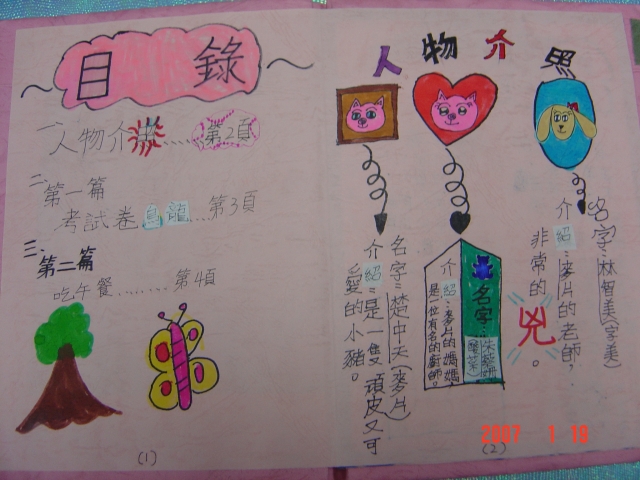 目錄
一、人物介紹......第2頁
二、第一篇
考試卷烏龍...第3頁
三、第二篇
吃午餐........第4頁
(1)
人物介照
名字:林智美(字美)
介紹:麥片的老師,
非常的兇。
名字:
介紹:麥片的媽媽,
是一位有名的廚師。
名字:楚中天(麥片)
介紹:是一隻頑皮又可
愛的小豬。
(2)
2007 1 19